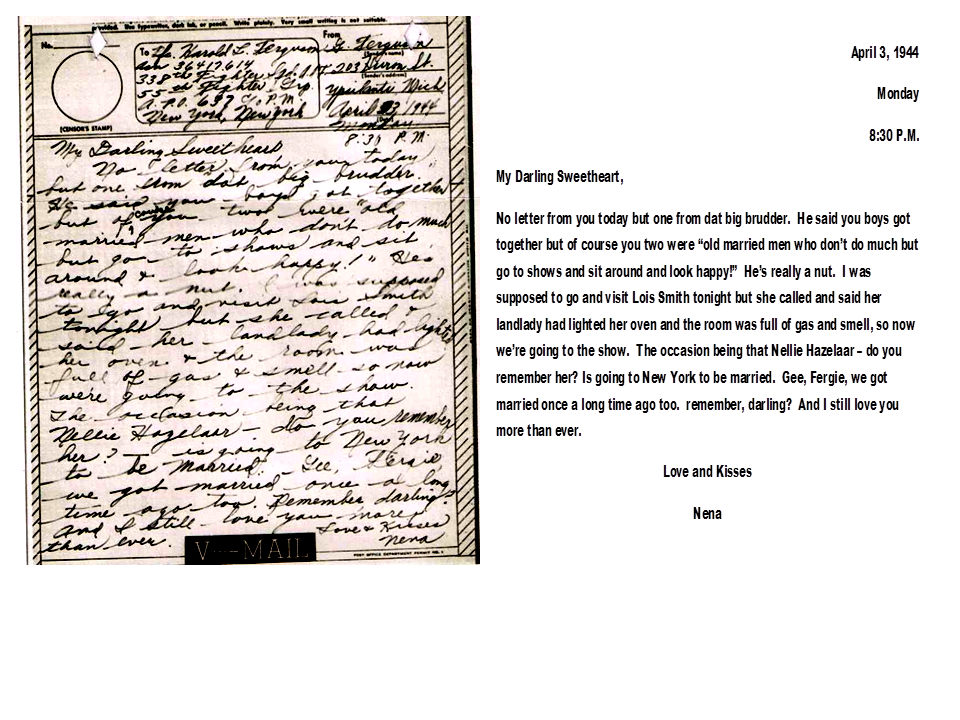 provided. Use typewriter, dark ink, or pencil. Write plainly. Very small writing is not suitable.
No.
(CENSOR'S STAMP)
To Harold L. Ferguson
36417614
338th Fighter
55th Fighter Grp.
A.P.O. 637 c/o P.M.
New York, New York
From
G. Ferguson
(Sender's name)
203 Huron St.
(Sender's address)
Ypsilanti Mich
April 3 1944
(Date)
Monday
8:30 P.M.
My Darling Sweetheart
No letter from you today
but one from dat big brudder.
He said you boys got together
but of course you two were "old
married men who don't do much
but go to shows and sit
around & look happy!" He's
really a nut. I was supposed
to go and visit Lois Smith
tonight but she called &
said her landlady had lighted
her oven & the room was
full of gas & smell so now
we're going to the show.
The occasion being that
Nellie Hazelaar - do you remember
her? - is going to New York
to be married. Gee, Fergie,
we got married once a long
time ago too. Remember darling?
And I still love you more
than ever.
Love & Kisses
Nena
V···-MAIL
POST OFFICE DEPARTMENT PERMIT NO.
April 3, 1944
Monday
8:30 P.M.
My Darling Sweetheart,
No letter from you today but one from dat big brudder. He said you boys got
together but of course you two were “old married men who don’t do much but
go to shows and sit around and look happy!” He’s really a nut. I was
supposed to go and visit Lois Smith tonight but she called and said her
landlady had lighted her oven and the room was full of gas and smell, so now
we’re going to the show. The occasion being that Nellie Hazelaar – do you
remember her? Is going to New York to be married. Gee, Fergie, we got
married once a long time ago too. remember, darling? And I still love you
more than ever.
Love and Kisses
Nena